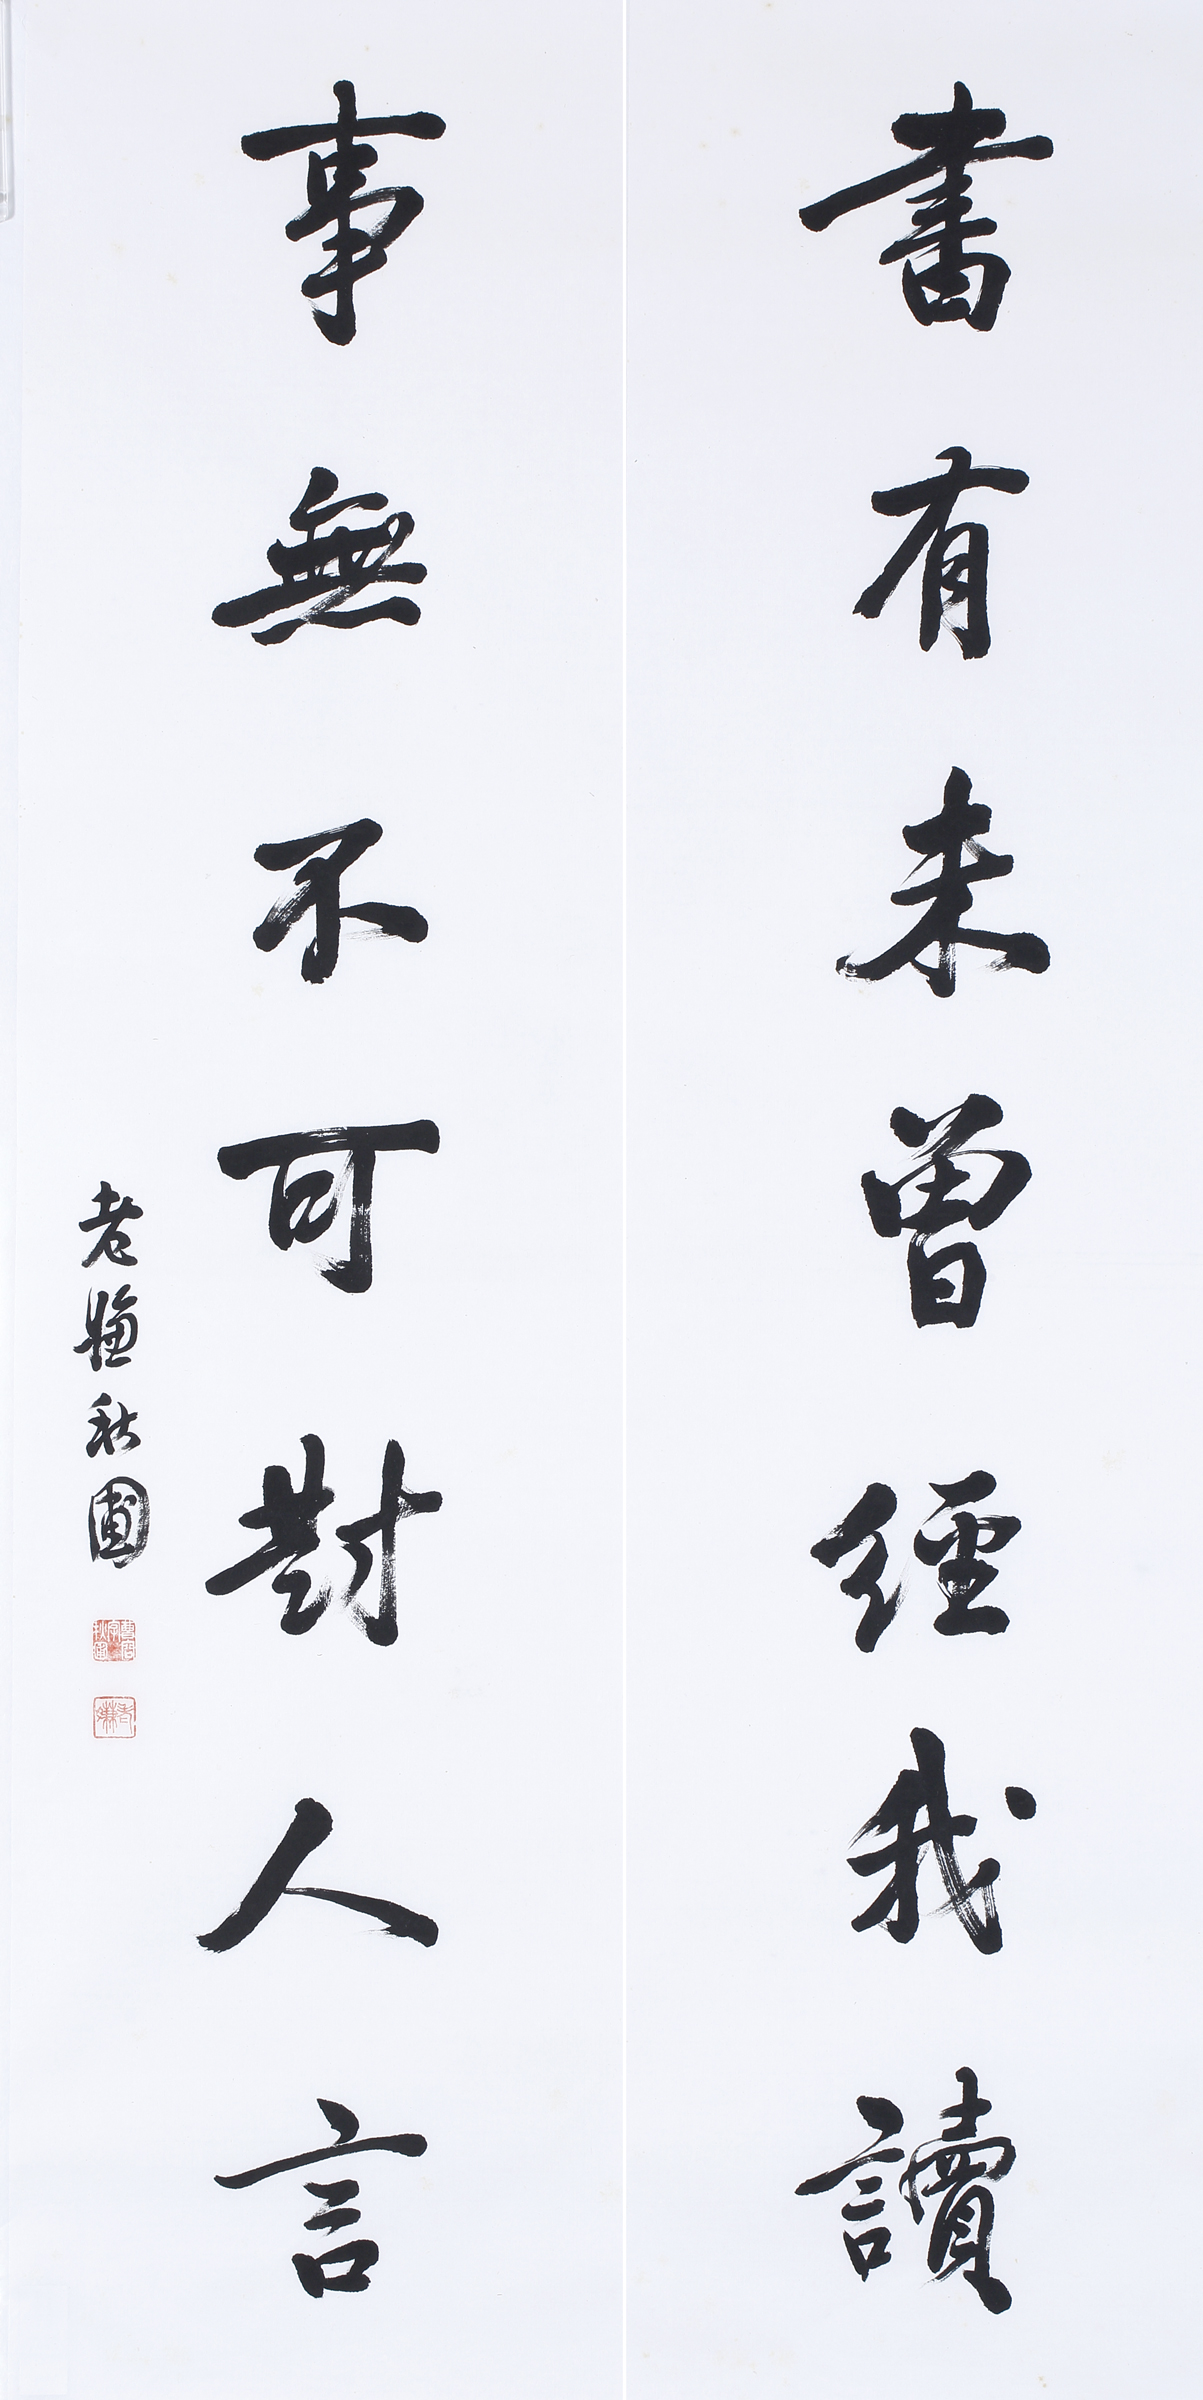 書有未曾經我讀
事無不可對人言
老嫌秋圃